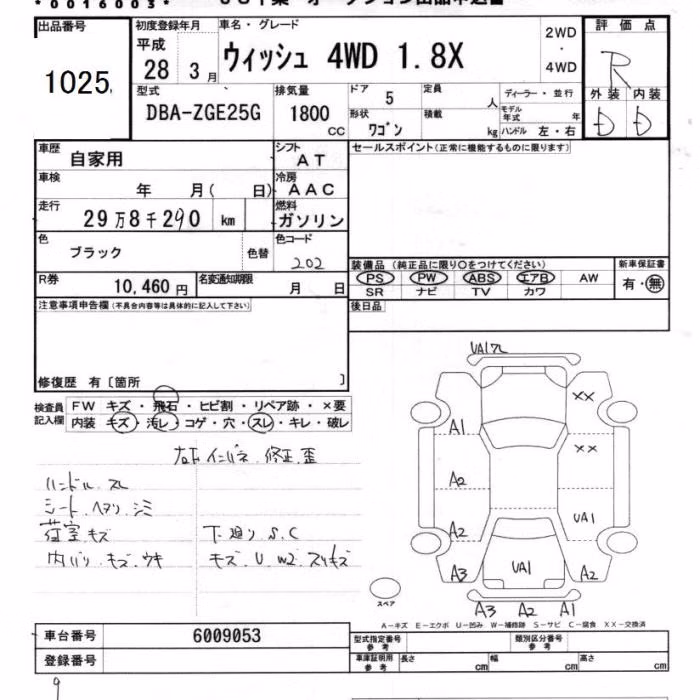 *0016003*
出品番号
1025
初度登録年月
平成
28 3月
車名・グレード
ウィッシュ 4WD 1.8X
2WD
・
4WD
評価点
R
外装 内装
D D
型式
DBA-ZGE25G
排気量
1800
CC
ドア
5
定員
人
形状
ワゴン
積載
kg
ディーラー・並行
モデル年式
年
ハンドル 左・右
車歴
自家用
シフト
AT
車検
年 月( 日)
冷房
AAC
走行
29万8千290 km
燃料
ガソリン
色
ブラック
色替
色コード
202
R券
10,460円
名変通知期限
月 日
セールスポイント(正常に機能するものに限ります)
装備品 (純正品に限り○をつけてください)
PS PW ABS エアB AW
SR ナビ TV カワ
新車保証書
有・無
後日品
注意事項申告欄(不具合内容等は具体的に記入して下さい)
修復歴 有〔箇所 〕
検査員記入欄
FW キズ・飛石・ヒビ割・リペア跡・×要
内装 キズ・汚レ・コゲ・穴・スレ・キレ・破レ
右下インパネ.修正.歪
ハンドル.スレ
シート.ヘタリ.シミ
荷室.キズ
内バリ.キズ.ウキ
下廻り.S.C
キズ.U.W2.スリキズ
UA1
XX
A1
XX
A2
A2
UA1
A3
UA1
A2
A3 A2 A1
スペア
A-キズ E-エクボ U-凹み W-補修跡 S-サビ C-腐食 XX-交換済
車台番号
6009053
登録番号
型式指定番号
参考
類別区分番号
参考
車庫証明用
参考
長さ
cm
幅
cm
高さ
cm
9